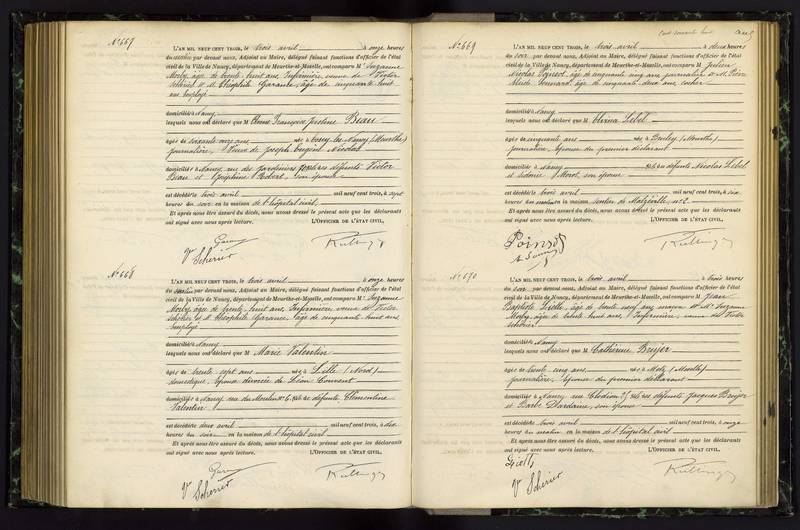 N° 667
L'AN MIL NEUF CENT TROIS, le trois avril à onze heures
du matin par devant nous, Adjoint au Maire, délégué faisant fonctions d'officier de l'état
civil de la Ville de Nancy, département de Meurthe-et-Moselle, ont comparu M Suzanne
Morly, âgé de trente huit ans, Infirmière, veuve de Victor
Scherier et M. Théophile Garance, âgé de cinquante huit
ans employé
domiciliés à Nancy
lesquels nous ont déclaré que M Françoise Beau
âgée de soixante onze ans née à (Meurthe)
journalière, Veuve de Joseph Eugène Nicolas
domiciliée à Nancy, rue des défunts Victor
Beau et Joséphine Robert, son épouse
est décédée trois avril mil neuf cent trois, à sept
heures du soir, en la maison de l'hôpital civil.
Et après nous être assuré du décès, nous avons dressé le présent acte que les déclarants
ont signé avec nous après lecture. L'OFFICIER DE L'ÉTAT CIVIL,
Vve Scherier
N° 668
L'AN MIL NEUF CENT TROIS, le trois avril à onze heures
du matin par devant nous, Adjoint au Maire, délégué faisant fonctions d'officier de l'état
civil de la Ville de Nancy, département de Meurthe-et-Moselle, ont comparu M Suzanne
Morly, âgé de trente huit ans Infirmière, veuve de Victor
Scherier et Théophile Garance, âgé de cinquante huit ans
employé
domiciliés à Nancy
lesquels nous ont déclaré que M Marie Valentin
âgée de trente sept ans née à Lille (Nord)
domestique, épouse divorcée de Léon
domiciliée à Nancy, rue du Moulin N° 6, fille de défunte Clémentine
Valentin
est décédée deux avril mil neuf cent trois, à dix
heures du soir en la maison de l'hôpital civil
Et après nous être assuré du décès, nous avons dressé le présent acte que les déclarants
ont signé avec nous après lecture. L'OFFICIER DE L'ÉTAT CIVIL,
Vve Scherier
N° 669
L'AN MIL NEUF CENT TROIS, le trois avril à deux heures
du soir par devant nous, Adjoint au Maire, délégué faisant fonctions d'officier de l'état
civil de la Ville de Nancy, département de Meurthe-et-Moselle, ont comparu M Julien
Nicolas Poinsot, âgé de cinquante cinq ans, journalier et M. Pierre
âgé de cinquante deux ans, cocher
domiciliés à Nancy
lesquels nous ont déclaré que M Elvina Lebel
âgée de cinquante ans née à Bouley (Meurthe)
journalière, épouse du premier déclarant
domiciliée à Nancy fille de défunts Nicolas Lebel
et Sidonie Morot, son épouse
est décédée trois avril mil neuf cent trois, à dix
heures du matin en la maison sentier de Malzéville, n° 2.
Et après nous être assuré du décès, nous avons dressé le présent acte que les déclarants
ont signé avec nous après lecture. L'OFFICIER DE L'ÉTAT CIVIL,
Poinsot
N° 670
L'AN MIL NEUF CENT TROIS, le trois avril à trois heures
du soir par devant nous, Adjoint au Maire, délégué faisant fonctions d'officier de l'état
civil de la Ville de Nancy, département de Meurthe-et-Moselle, ont comparu M Jean
Baptiste âgé de trente neuf ans et Me Suzanne
Morly, âgé de trente huit ans, Infirmière, veuve de Victor
Scherier
domiciliés à Nancy
lesquels nous ont déclaré que M Catherine Breijer
âgée de trente cinq ans née à Metz (Moselle)
journalière, épouse du premier déclarant
domiciliée à Nancy, rue Clodion fille de défunts Jacques Breijer
et Barbe Dardaine, son épouse
est décédée trois avril mil neuf cent trois, à onze
heures du matin en la maison de l'hôpital civil
Et après nous être assuré du décès, nous avons dressé le présent acte que les déclarants
ont signé avec nous après lecture. L'OFFICIER DE L'ÉTAT CIVIL,
Vve Scherier